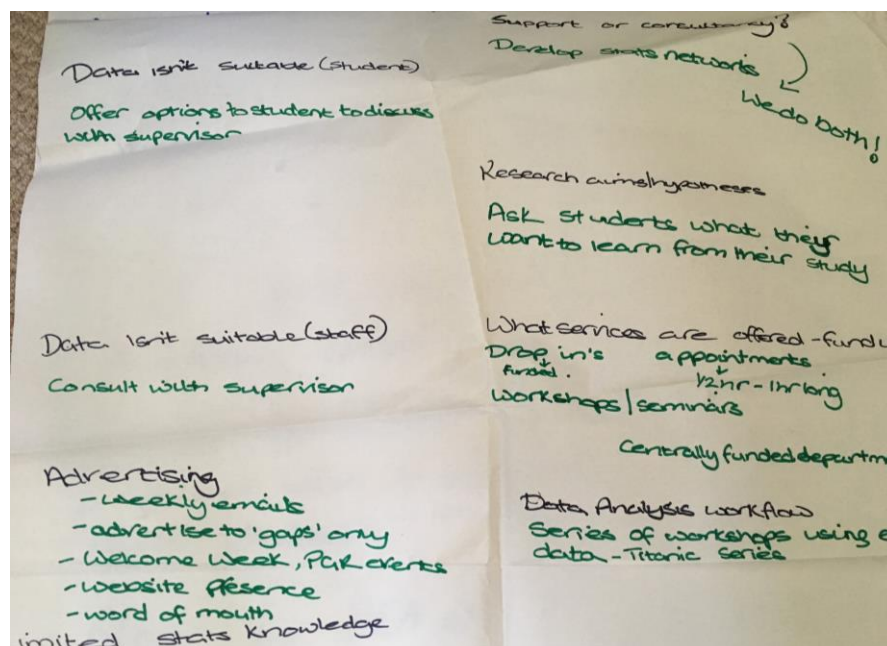 Data isn't suitable (student)
Offer options to student to discuss
with supervisor
Data isn't suitable (staff)
Consult with supervisor
Advertising
- weekly emails
- advertise to 'gaps' only
- Welcome Week, PGR events
- website presence
- word of mouth
imited stats knowledge
Support or consultancy?
Develop stats networks
We do both!
Research aims/hypotheses
Ask students what they
want to learn from their study
What services are offered - fundi
Drop in's appointments
funded. 1/2hr - 1hr long
workshops/seminars
Centrally funded departm
Data Analysis workflow
Series of workshops using e
data - Titanic series